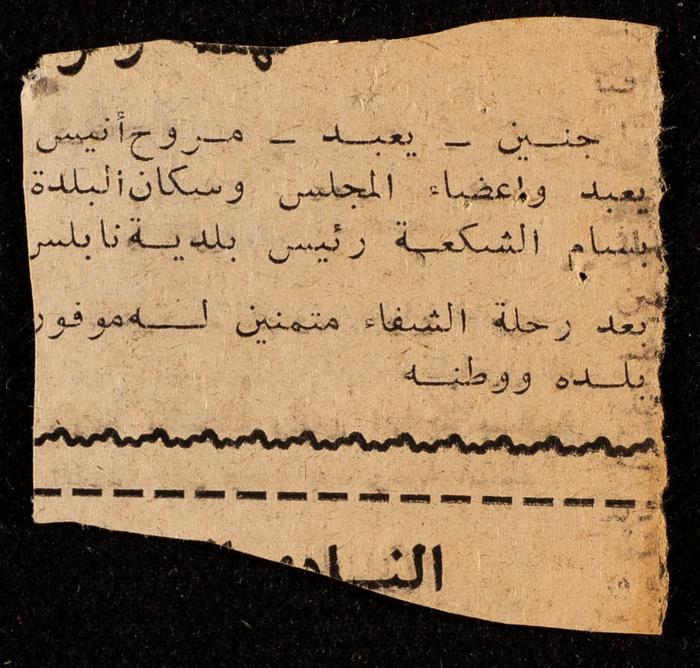 جنين – يعبد – مروح أنيس
يعبد وإعضاء المجلس وسكان البلدة
بسام الشكعة رئيس بلدية نابلس
بعد رحلة الشفاء متمنين له موفور
بلده ووطنه